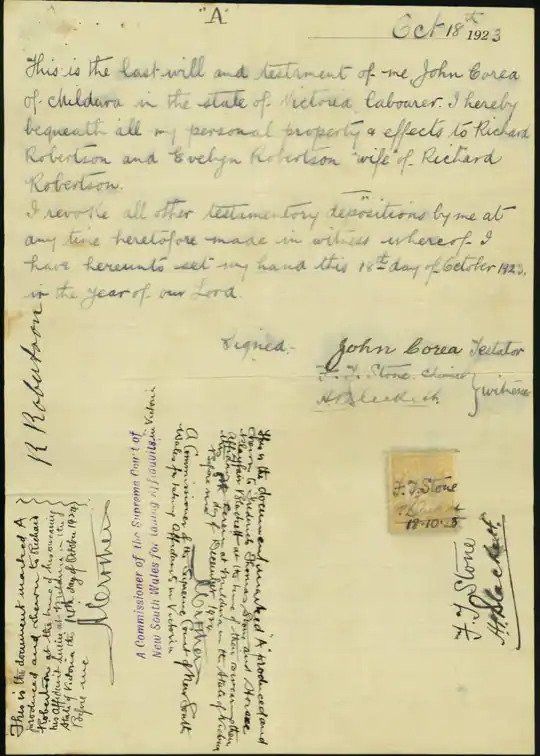 "A"
Oct 18th 1923
This is the last will and testament of me John Corea
of Mildura in the state of Victoria labourer. I hereby
bequeath all my personal property & effects to Richard
Robertson and Evelyn Robertson "wife" of Richard
Robertson.
I revoke all other testamentory depositions by me at
any time heretofore made in witness whereof I
have hereunto set my hand this 18th day of October 1923.
in the year of our Lord.
Signed.
John Corea Testator
F. T. Stone
witness
R Robertson
This is the document marked A
produced and shown to Richard
Robertson at the time of his swearing
his Affidavit herein at Mildura in the
State of Victoria the day of October 1924
Before me
A Commissioner of the Supreme Court of
New South Wales for taking Affidavits in Victoria
This is the document marked "A" produced and
shown to Frederick Thomas Stone and Horace
at the time of their swearing their
Affidavit herein at Mildura in the State of Victoria
this day of December 1924
Before me
A Commissioner of the Supreme Court of New South
Wales for taking Affidavits in Victoria
F. T. Stone
18-10-23
F. T. Stone